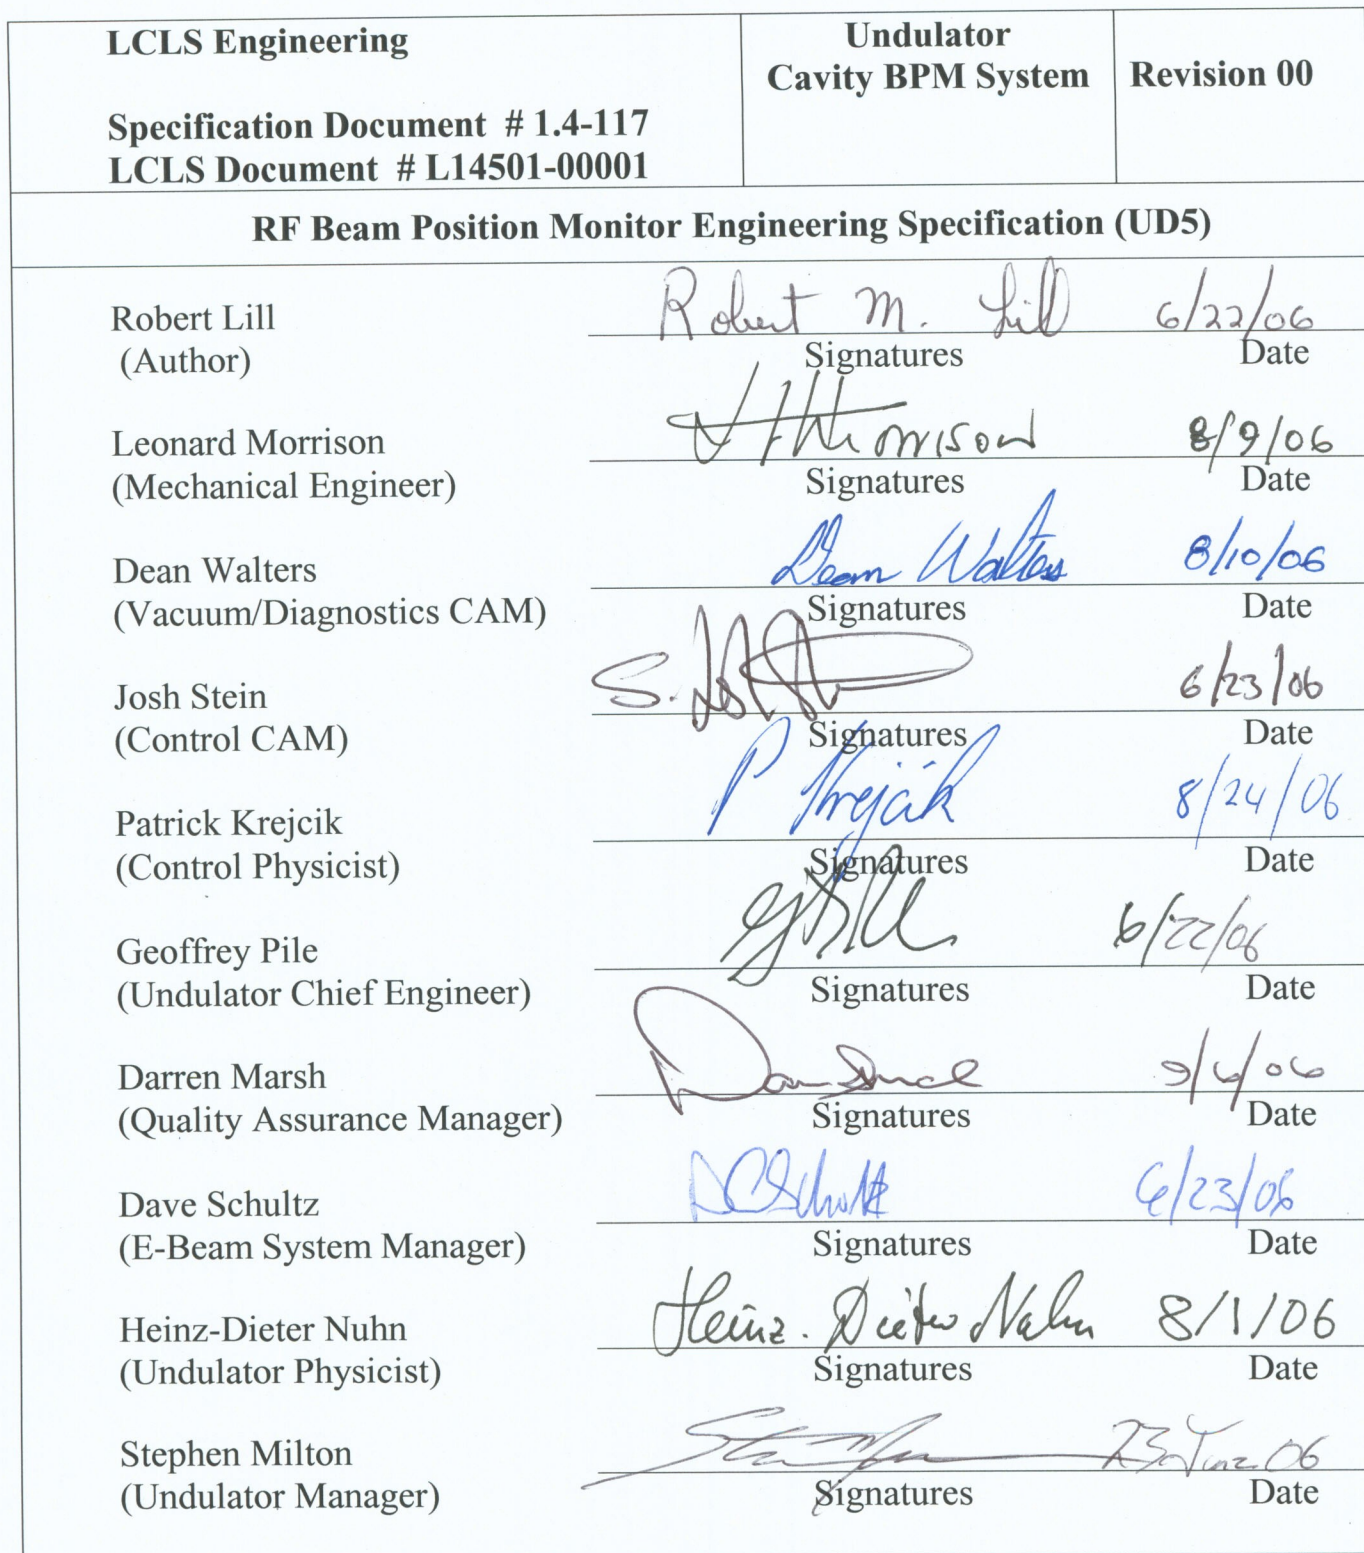 LCLS Engineering
Specification Document # 1.4-117
LCLS Document # L14501-00001
Undulator
Cavity BPM System
Revision 00
RF Beam Position Monitor Engineering Specification (UD5)
Robert Lill
(Author)
Robert M. Lill 6/22/06
Signatures Date
Leonard Morrison
(Mechanical Engineer)
Morrison 8/9/06
Signatures Date
Dean Walters
(Vacuum/Diagnostics CAM)
Dean Walters 8/10/06
Signatures Date
Josh Stein
(Control CAM)
S. 6/23/06
Signatures Date
Patrick Krejcik
(Control Physicist)
P Krejcik 8/24/06
Signatures Date
Geoffrey Pile
(Undulator Chief Engineer)
6/22/06
Signatures Date
Darren Marsh
(Quality Assurance Manager)
9/6/06
Signatures Date
Dave Schultz
(E-Beam System Manager)
DCSchultz 6/23/06
Signatures Date
Heinz-Dieter Nuhn
(Undulator Physicist)
Heinz-Dieter Nuhn 8/1/06
Signatures Date
Stephen Milton
(Undulator Manager)
23 June 06
Signatures Date